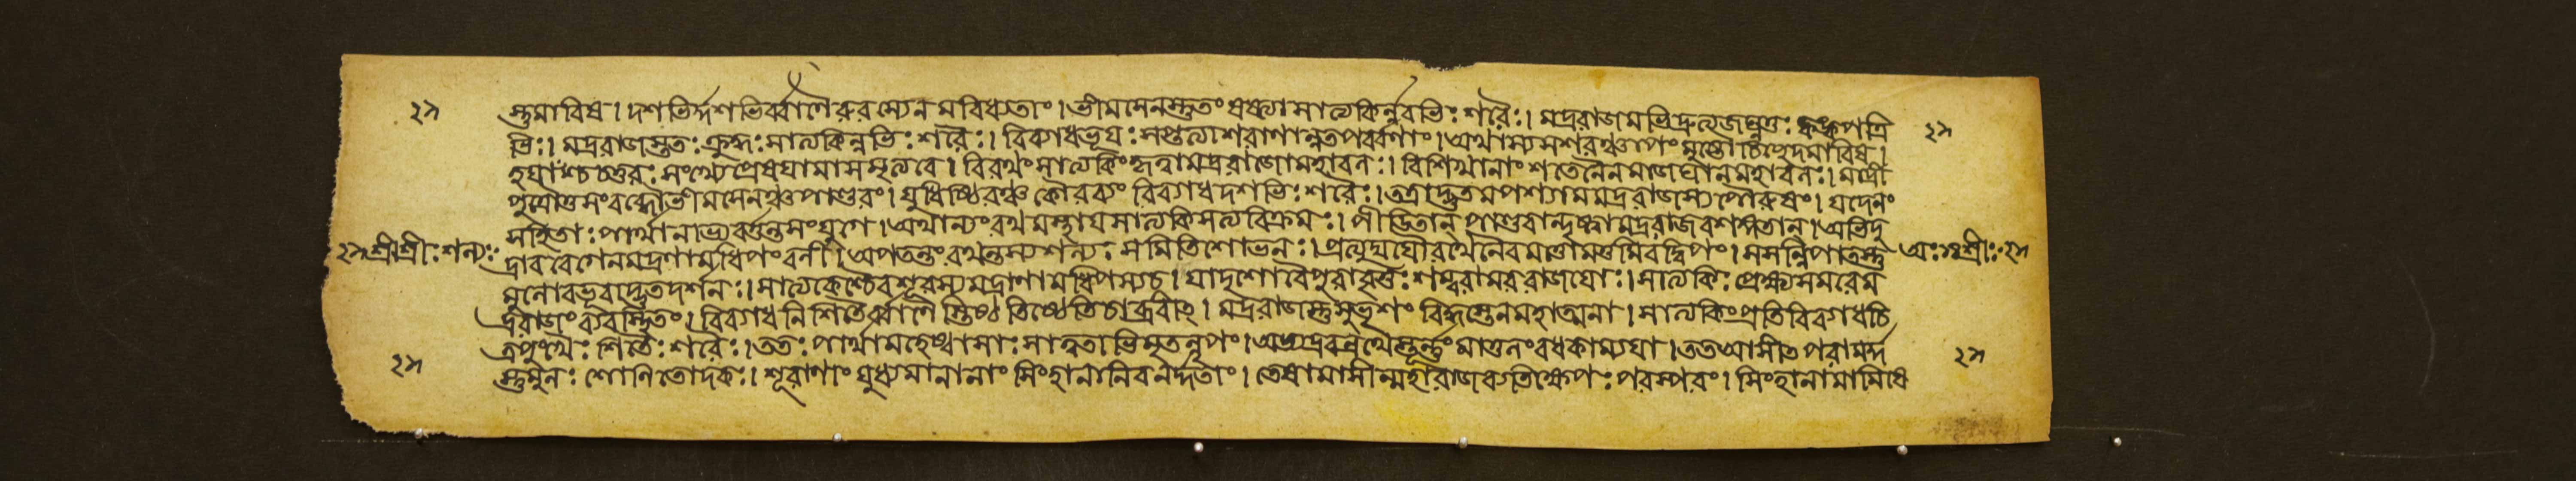 স্তমাবিষৎ। দশভির্দ্দশভির্ব্বাণৈরুরস্যেনমবিধ্যতাং। ভীমসেনস্তুতং ষষ্ট্যা সাত্যকির্ন্নবভিঃ শরৈঃ। মদ্ররাজমভিদ্রুত্যজঘ্নতুঃ কঙ্কপত্রি
ভিঃ। মদ্ররাজস্ততঃ ক্রুদ্ধঃ সাত্যকিন্নবভিঃ শরৈঃ। বিব্যাধভূযঃ সপ্তত্যাশরাণান্নতপর্ব্বণাং। অথাস্যসশরঞ্চাপং মুষ্টৌচিচ্ছেদমারিষ।
হযাংশ্চ চতুরঃ সংখ্যেপ্রেষযামাসমৃত্যবে। বিরথং সাত্যকিং কৃত্বামদ্ররাজোমহাবলঃ। বিশিখানাং শতেনৈনমাজঘানমহাবলঃ। মাদ্রী
পুত্রৌতুসংরব্ধৌভীমসেনঞ্চপাণ্ডবং। যুধিষ্ঠিরঞ্চ কৌরব্যং বিব্যাধদশভিঃ শরৈঃ। তত্রাদ্ভুতমপশ্যামমদ্ররাজস্যপৌরুষং। যদেনং
সহিতাঃ পার্থানাভ্যবর্ত্তন্তসংযুগে। অথান্যং রথমাস্থাযসাত্যকিঃসত্যবিক্রমঃ। পীডিতান্ পাণ্ডবান্দৃষ্ট্বামদ্ররাজবশঙ্গতান্। অভিদু
২৯ শ্রীশ্রীঃ শল্যঃ দ্রাববেগেনমদ্রাণামধিপং বলী। আপতন্তং রথন্তস্যশল্যঃ সমিতিশোভনঃ। প্রত্যুদ্যযৌরথেনৈবমত্তোমত্তমিবদ্বিপং। সসন্নিপাতস্তু
মুলোবভূবাদ্ভুতদর্শনঃ। সাত্যকেশ্চৈবশূরস্যমদ্রাণামধিপস্যচ। যাদৃশোবৈপুরাবৃত্তঃ শম্বরামররাজযোঃ। সাত্যকিঃ প্রেক্ষ্যসমরেম
দ্ররাজং ব্যবস্থিতং। বিব্যাধনিশিতৈর্ব্বাণৈস্তিষ্ঠ তিষ্ঠেতিচাব্রবীৎ। মদ্ররাজস্তুসুভৃশং বিদ্ধস্তেনমহাত্মনা। সাত্যকিং প্রতিবিব্যাধচি
ত্রপুংখৈঃ শিতৈঃ শরৈঃ। ততঃ পার্থামহেষ্বাসাঃ সাত্বতাভিসৃতংনৃপং। অভ্যদ্রবন্রথৈস্তূর্ণং মাতুলংবধকাম্যযা। ততআসীৎপরামর্দ্দ
স্তুমুলঃ শোণিতোদকঃ। শূরাণাং যুধ্যমানানাং সিংহানামিবনর্দ্দতাং। তেষামাসীন্মহারাজব্যতিক্ষেপঃ পরস্পরং। সিংহানামামিষে